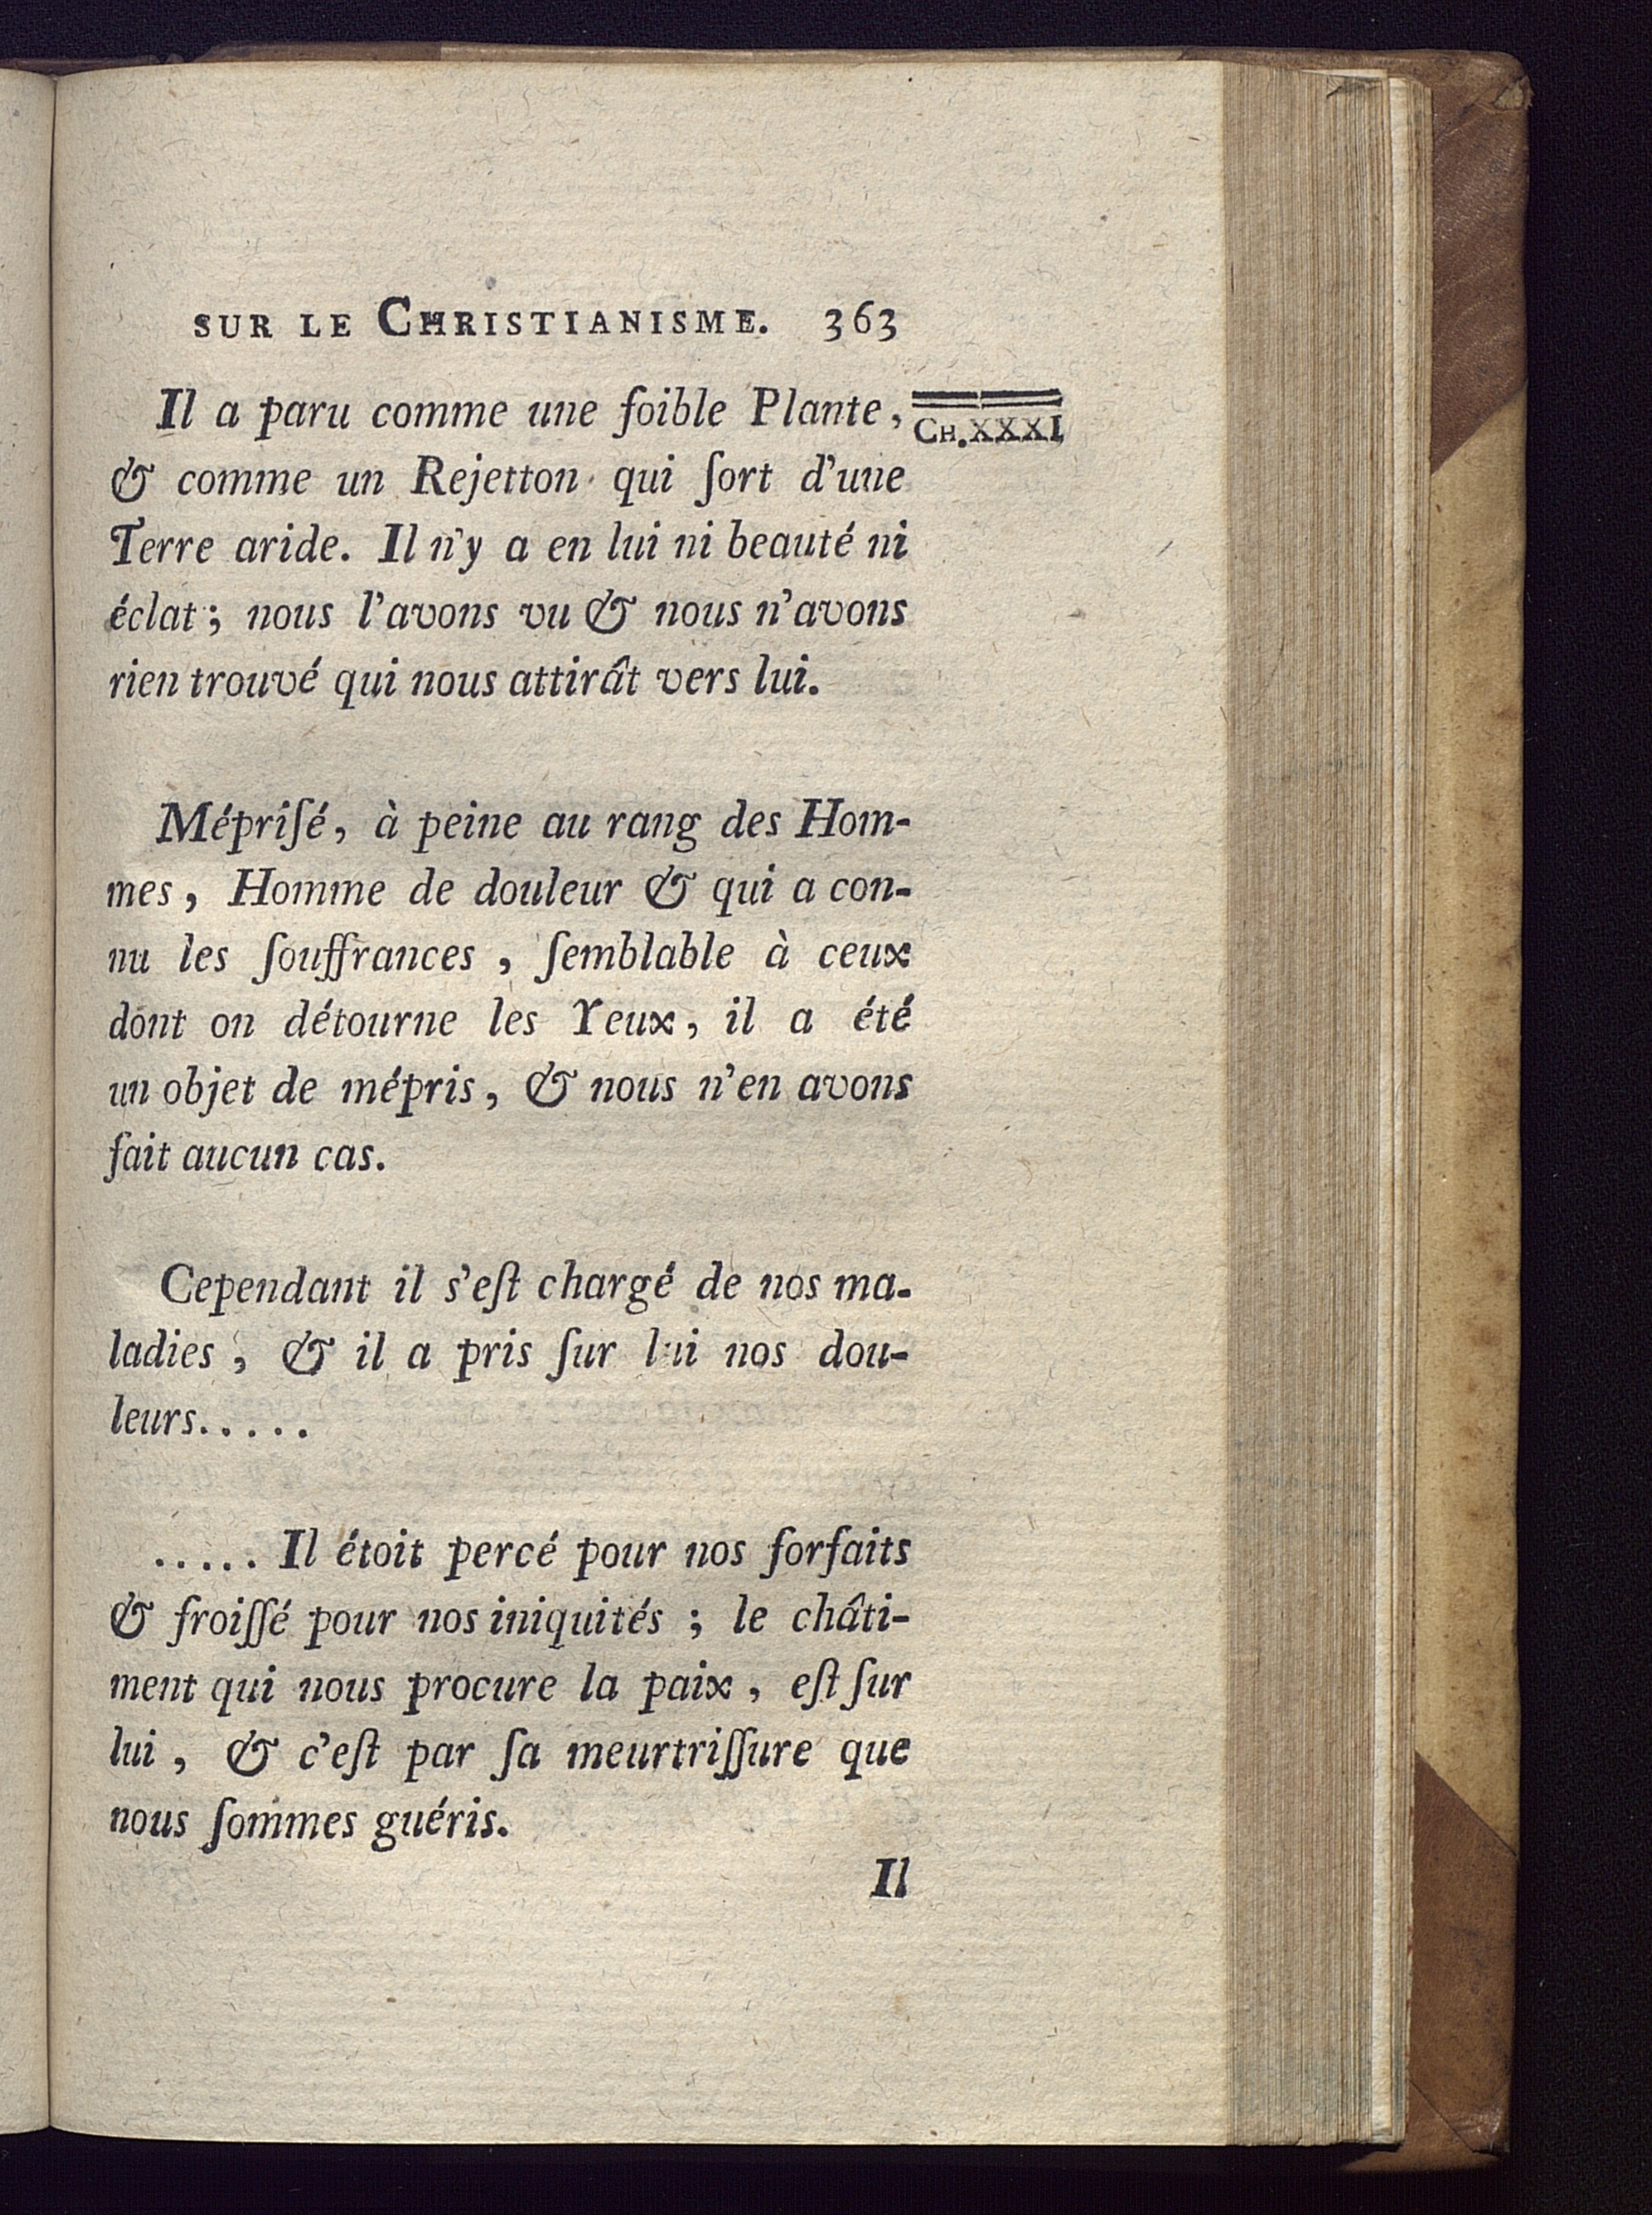 SUR LE CHRISTIANISME. 363
Il a paru comme une foible Plante,
CH.XXXI.
& comme un Rejetton qui ſort d'une
Terre aride. Il n'y a en lui ni beauté ni
éclat; nous l'avons vu & nous n'avons
rien trouvé qui nous attirât vers lui.
Mépriſé, à peine au rang des Hom-
mes, Homme de douleur & qui a con-
nu les ſouffrances, ſemblable à ceux
dont on détourne les Yeux, il a été
un objet de mépris, & nous n'en avons
fait aucun cas.
Cependant il s'eſt chargé de nos ma-
ladies, & il a pris ſur lui nos dou-
leurs.....
..... Il étoit percé pour nos forfaits
& froiſſé pour nos iniquités; le châti-
ment qui nous procure la paix, eſt ſur
lui, & c'eſt par ſa meurtriſſure que
nous ſommes guéris.
Il